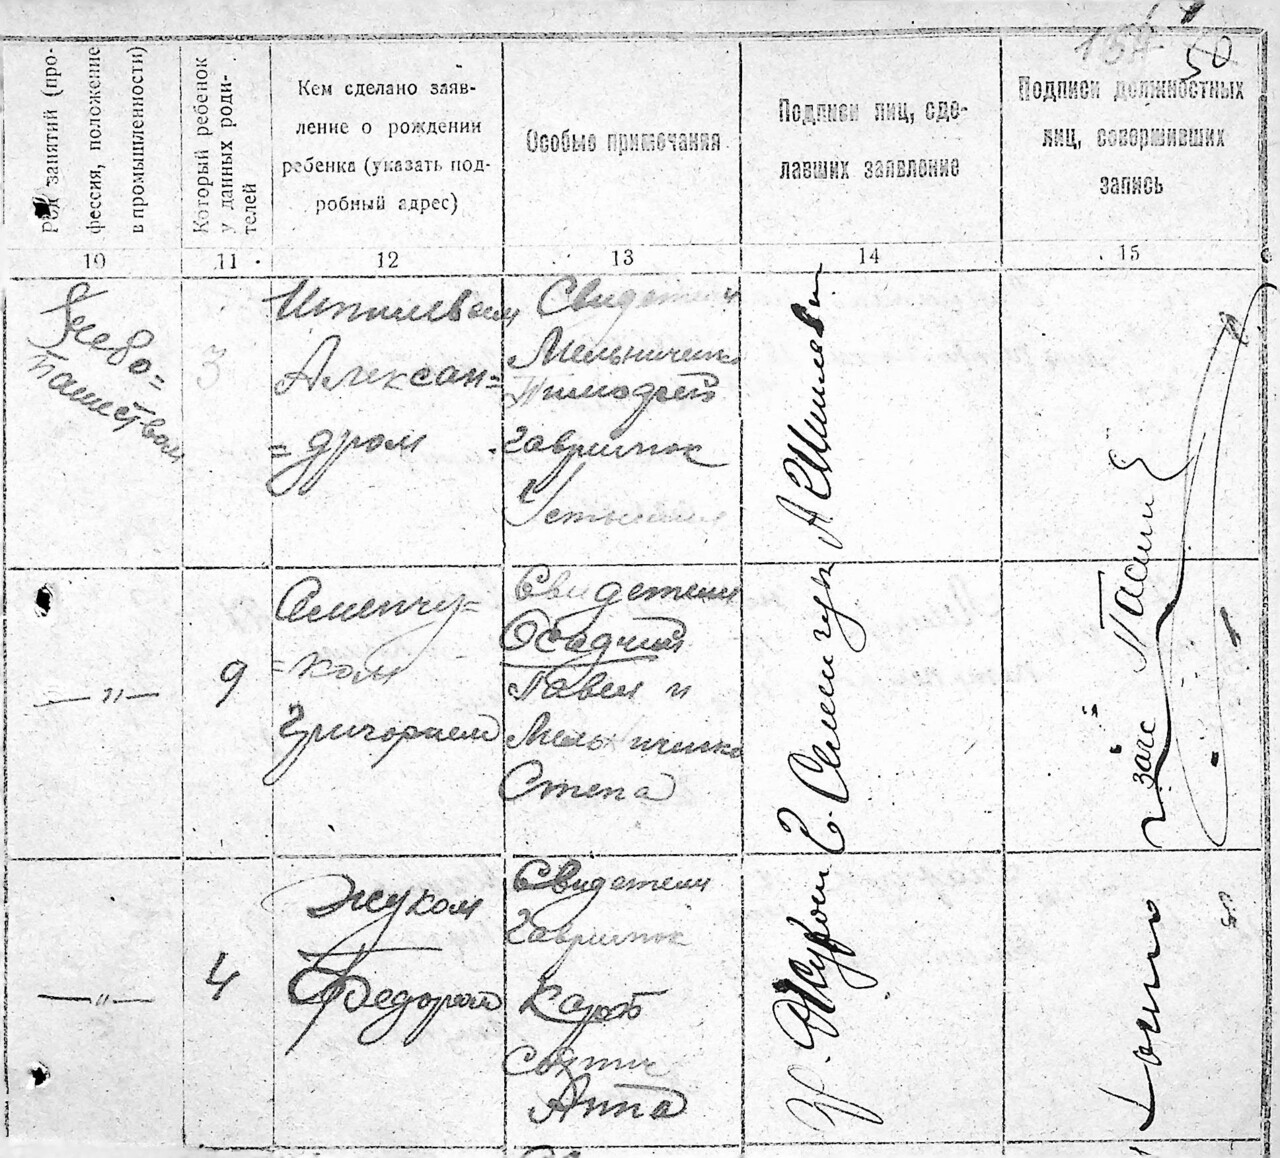 154
50
род занятий (про-
фессия, положение
в промышленности)
Который ребенок
у данных роди-
телей
Кем сделано заяв-
ление о рождении
ребенка (указать под-
робный адрес)
Особые примечания
Подписи лиц, сде-
лавших заявление
Подписи должностных
лиц, совершивших
запись
10
11
12
13
14
15
Хлебо=
пашеством
3
Алексан=
=дром
Свидетели
Мельниченко
Тимофей
Гаврилюк
— „ —
9
Семенчу=
=ком
Григорием
Свидетели
Осадчий
Павел и
Мельниченко
Степа
Г. Семенчук
— „ —
4
Жуком
Федором
Свидетели
Гаврилюк
Карп
Анна
загс